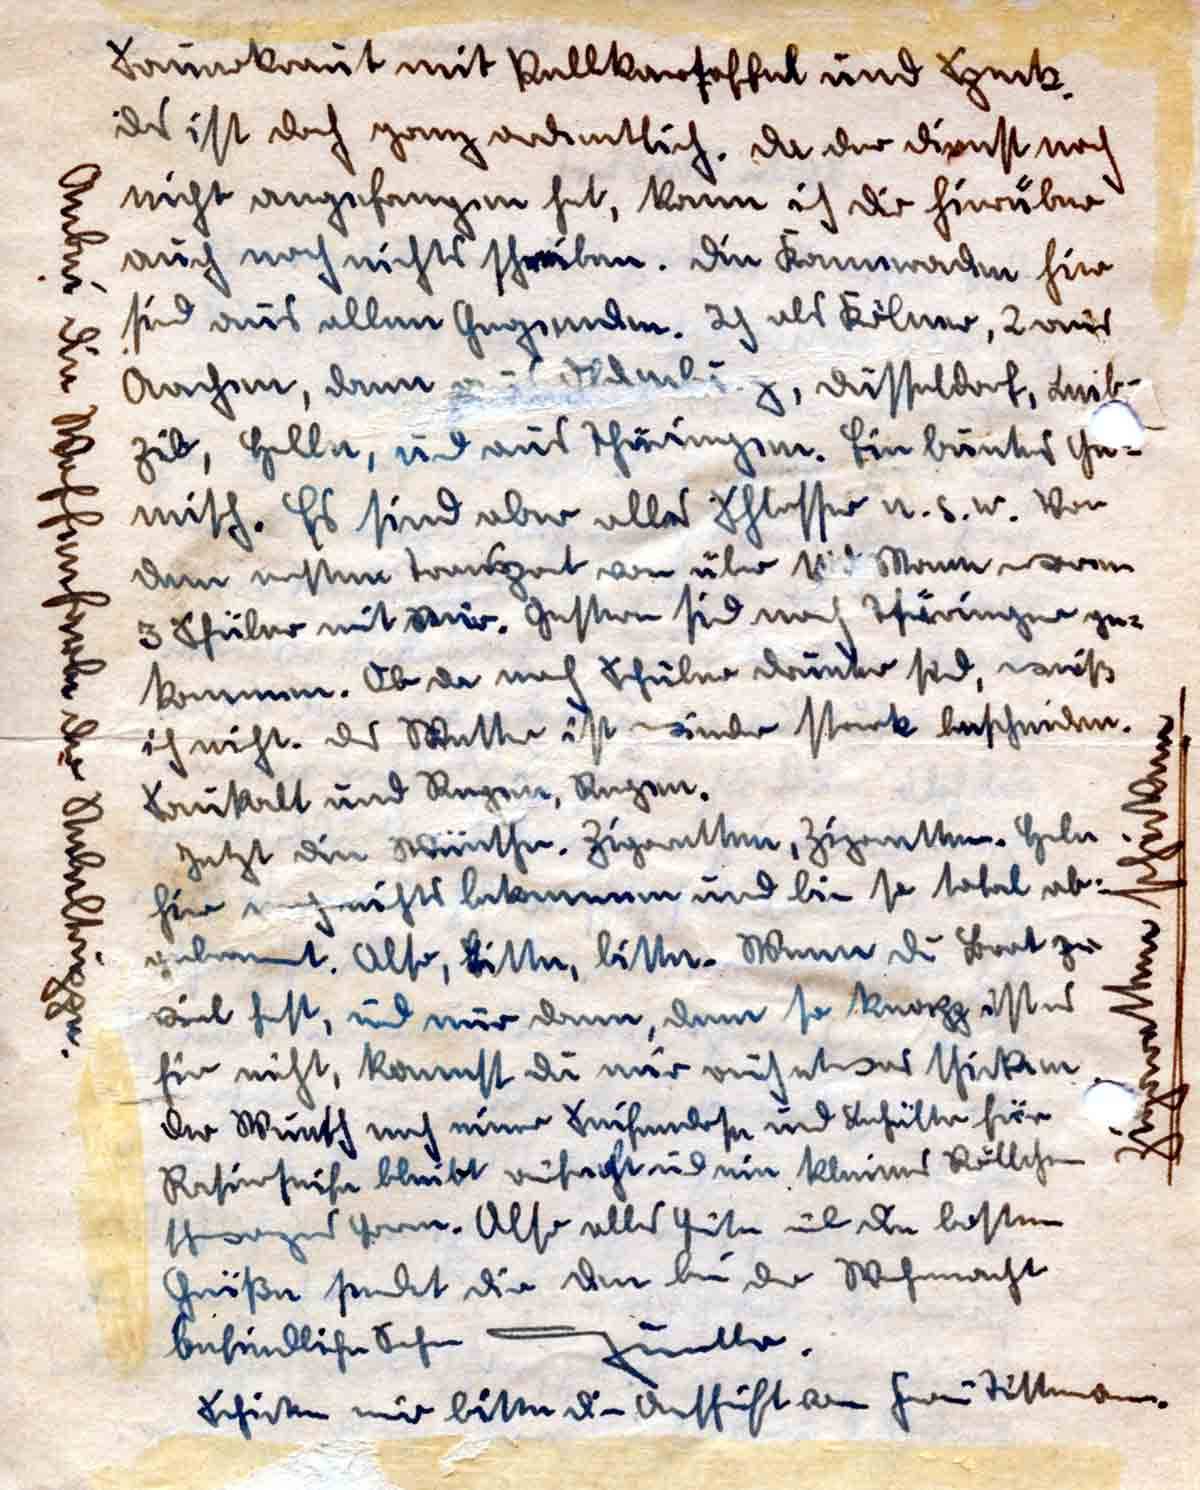 Sauerkraut mit Pellkartoffel und Speck.
Es ist doch ganz ordentlich. Da der Dienst noch
nicht angefangen hat, kann ich dir hierüber
auch noch nichts schreiben. Die Kameraden hier
sind aus allen Gegenden. Ich als Kölner, 2 aus
Aachen, dann aus Düsseldorf, Leib-
zib, Halle, und aus Thüringen. Ein buntes Ge-
misch. Es sind aber alles Schlosser u.s.w. Von
dem ersten Transport von über Mann waren
3 Schüler mit mir. Gestern sind noch Thüringer ge-
kommen. Ob da noch Schüler drunter sind, weiß
ich nicht. Das Wetter ist wieder stark bescheiden.
Saukalt und Regen, Regen.
Jetzt die Wünsche. Zigaretten, Zigaretten. Habe
hier noch nichts bekommen und bin so total ab-
gebrannt. Also, bitte, bitte. Wenn du Brot zu
viel hast, und nur dann, denn so knapp ist es
hier nicht, kannst du mir auch etwas schicken.
Der Wunsch nach einer Seifendose und Behälter für
Rasierseife bleibt aufrecht und ein kleines Röllchen
schwarzes Garn. Also alles Gute und die besten
Grüße sendet dir dein bei der Wehrmacht
befindlicher Sohn Günther.
Schicke mir bitte die Anschrift von Frau Tittmann.
Anbei die Waffenfarbe der Schulterklappe.
Zigaretten schicken